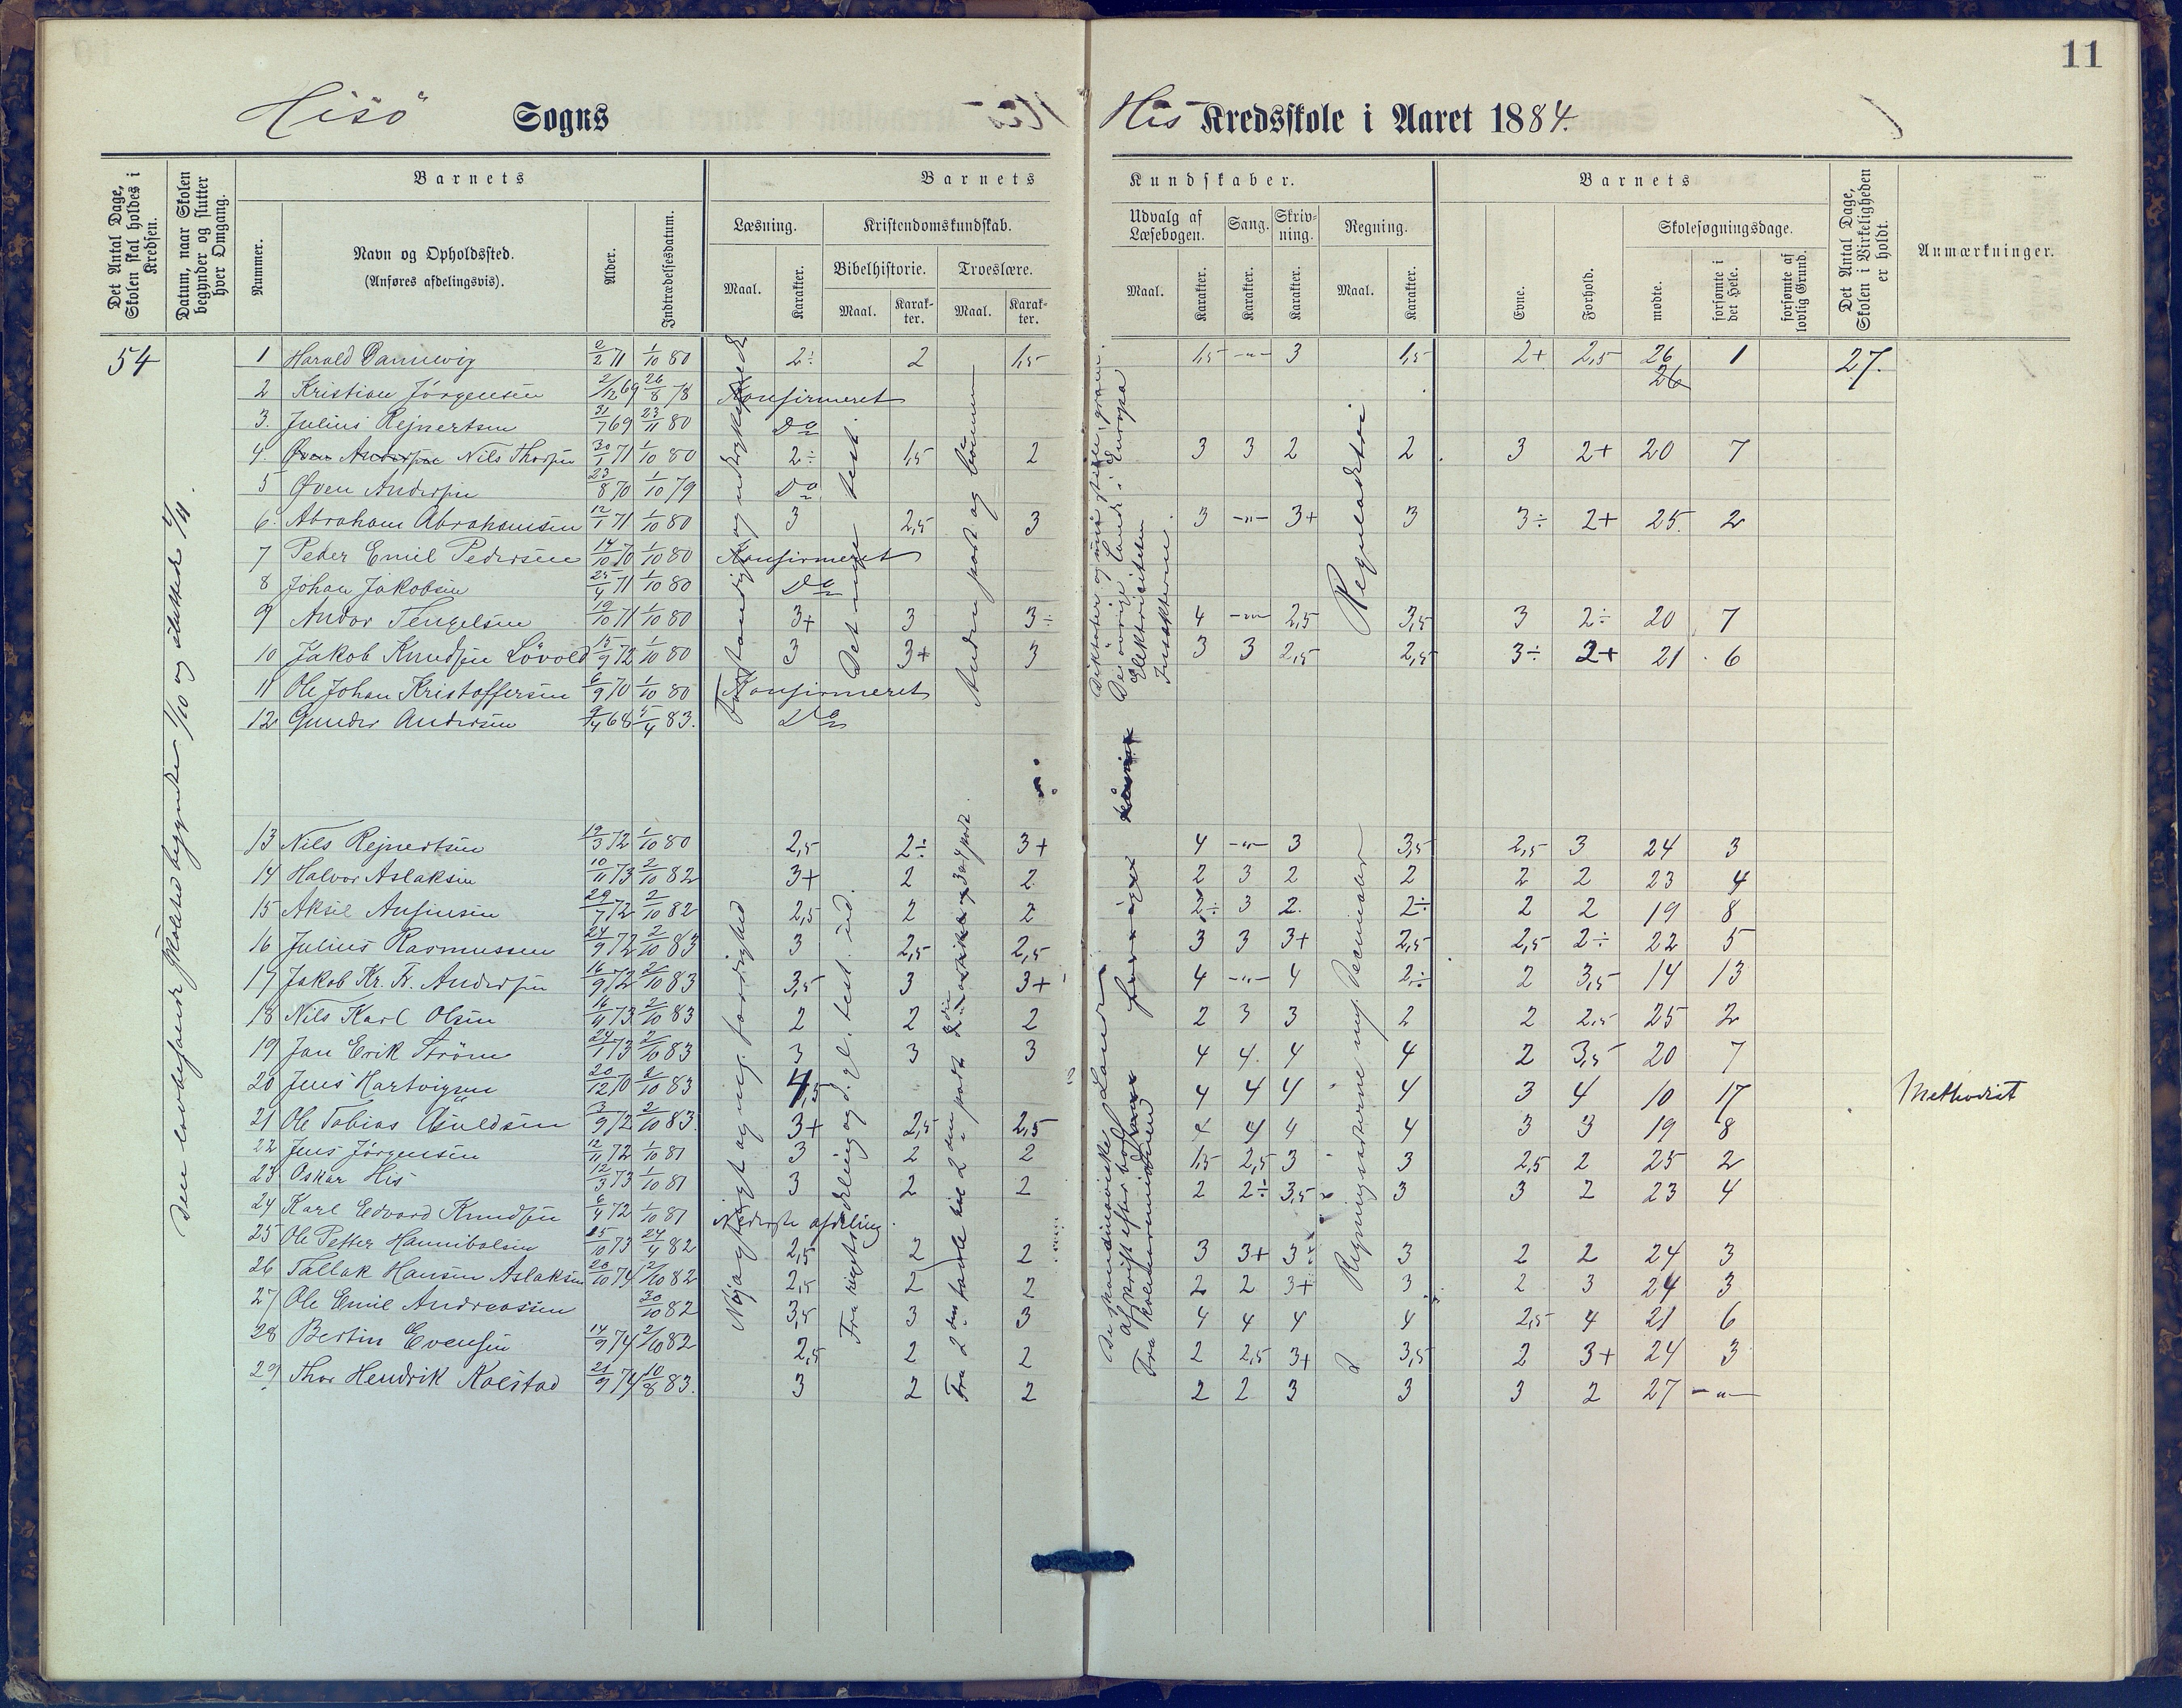 11
Hisö Sogns His Kredsskole i Aaret 1884.
Det Antal Dage, Skolen skal holdes i Kredsen.
Datum, naar Skolen begynder og slutter hver Omgang.
Barnets
Nummer.
Navn og Opholdssted.
(Anføres afdelingsvis).
Alder.
Indtrædelsesdatum.
Barnets Kundskaber.
Læsning.
Maal.
Karakter.
Kristendomskundskab.
Bibelhistorie.
Maal.
Karak-ter.
Troeslære.
Maal.
Karak-ter.
Udvalg af Læsebogen.
Maal.
Karakter.
Sang.
Karakter.
Skriv-ning.
Karakter.
Regning.
Maal.
Karakter.
Barnets
Evne.
Forhold.
Skolesøgningsdage.
mødte.
forsømte i det Hele.
forsømte af lovlig Grund.
Det Antal Dage, Skolen i Virkeligheden er holdt.
Anmærkninger.
54
1 Harald Dannevig 2/2 71 1/10 80 2÷ 2 1,5 1,5 -"- 3 1,5 2+ 2,5 26 1 27.
26
2 Kristian Jörgensen 2/12 69 26/8 78 Konfirmeret
3. Julius Rejnertsen 31/7 69 23/11 80 Do
4. Øven Andersen Nils Thorsen 30/1 71 1/10 80 2÷ 1,5 2 3 3 2 2 3 2+ 20 7
5 Øven Andersen 23/8 70 1/10 79 Do
6. Abraham Abrahamsen 12/1 71 1/10 80 3 2,5 3 3 -"- 3+ 3 3÷ 2+ 25. 2
7 Peder Emil Pedersen 14/10 70 1/10 80 Konfirmeret
8 Johan Jakobsen 25/4 71 1/10 80 Do
9 Andor Tengelsen 19/10 71 1/10 80 3+ 3 3÷ 4 -"- 2,5 3,5 3 2÷ 20 7
10 Jakob Knudsen Lövold 15/9 72 1/10 80 3 3+ 3 3 3 2,5 2,5 3÷ 2+ 21 6
11 Ole Johan Kristoffersen 6/9 70 1/10 80 Konfirmeret
12 Gunder Andersen 9/4 68 5/4 83. Do
13 Nils Rejnertsen 19/3 72 1/10 80 2,5 2÷ 3+ 4 -"- 3 3,5 2,5 3 24 3
14 Halvor Aslaksen 10/11 73 2/10 82 3+ 2 2 2 3 2 2 2 2 23 4
15 Aksel Ansinsen 29/7 72 2/10 82 2,5 2 2 2÷ 3 2. 2÷ 2 2 19 8
16 Julius Rasmussen 24/9 72 2/10 83 3 2,5 2,5 3 3 3+ 2,5 2,5 2÷ 22 5
17 Jakob Kr. Fr. Andersen 16/9 72 2/10 83 3,5 3 3+ 4 -"- 4 2÷ 2 3,5 14 13
18 Nils Karl Olsen 16/11 73 2/10 83 2 2 2 2 3 3 2 2 2,5 25 2
19 Jan Erik Ström 24/1 73 2/10 83 3 3 3 4 4. 4 4 2 3,5 20 7
20 Jens Hartvigsen 20/12 70 2/10 83 4,5 4 4 4 4 3 4 10 17 Methodist
21 Ole Tobias 3/9 72 2/10 83. 3+ 2,5 2,5 4 4 4 4 3 3 19 8
22 Jens Jörgensen 12/11 72 1/10 81 3 2 2 1,5 2,5 3 3 2,5 2 25 2
23 Oskar His 12/3 73 1/10 81 3 2 2 2 2÷ 3,5 3 3 2 23 4
24 Karl Edvard Knudsen 6/4 72 1/10 81 Nederste afdeling.
25 Ole Petter Hannibalsen 25/10 73 24/4 82 2,5 2 2 3 3+ 3÷ 3 2 2 24 3
26 Tallak Hansen Aslaksen 20/10 74 2/10 82 2,5 2 2 2 2 3+ 3 2 3 24 3
27 Ole Emil Andreassen 30/10 82 3,5 3 3 4 4 4 4 2,5 4 21 6
28 Bertin Evensen 14/9 74 2/10 82 2,5 2 2 2 2,5 3+ 3,5 2 3+ 24 3
29 Thor Hendrik Kolstad 21/9 74 10/8 83. 3 2 2 2 2 3 3 3 2 27 -"-
Den lovbefalede skoletid begyndte 1/10 og sluttede 4/11.
Det nye test.
Anden part og bönnen
De övrige Lande i Europa
Elektrisiteten
Insekterne
Reguladetri
Nöjagtigt og
De skandinaviske Lande
afskrift efter bog
Regningsarterne med Decimaler